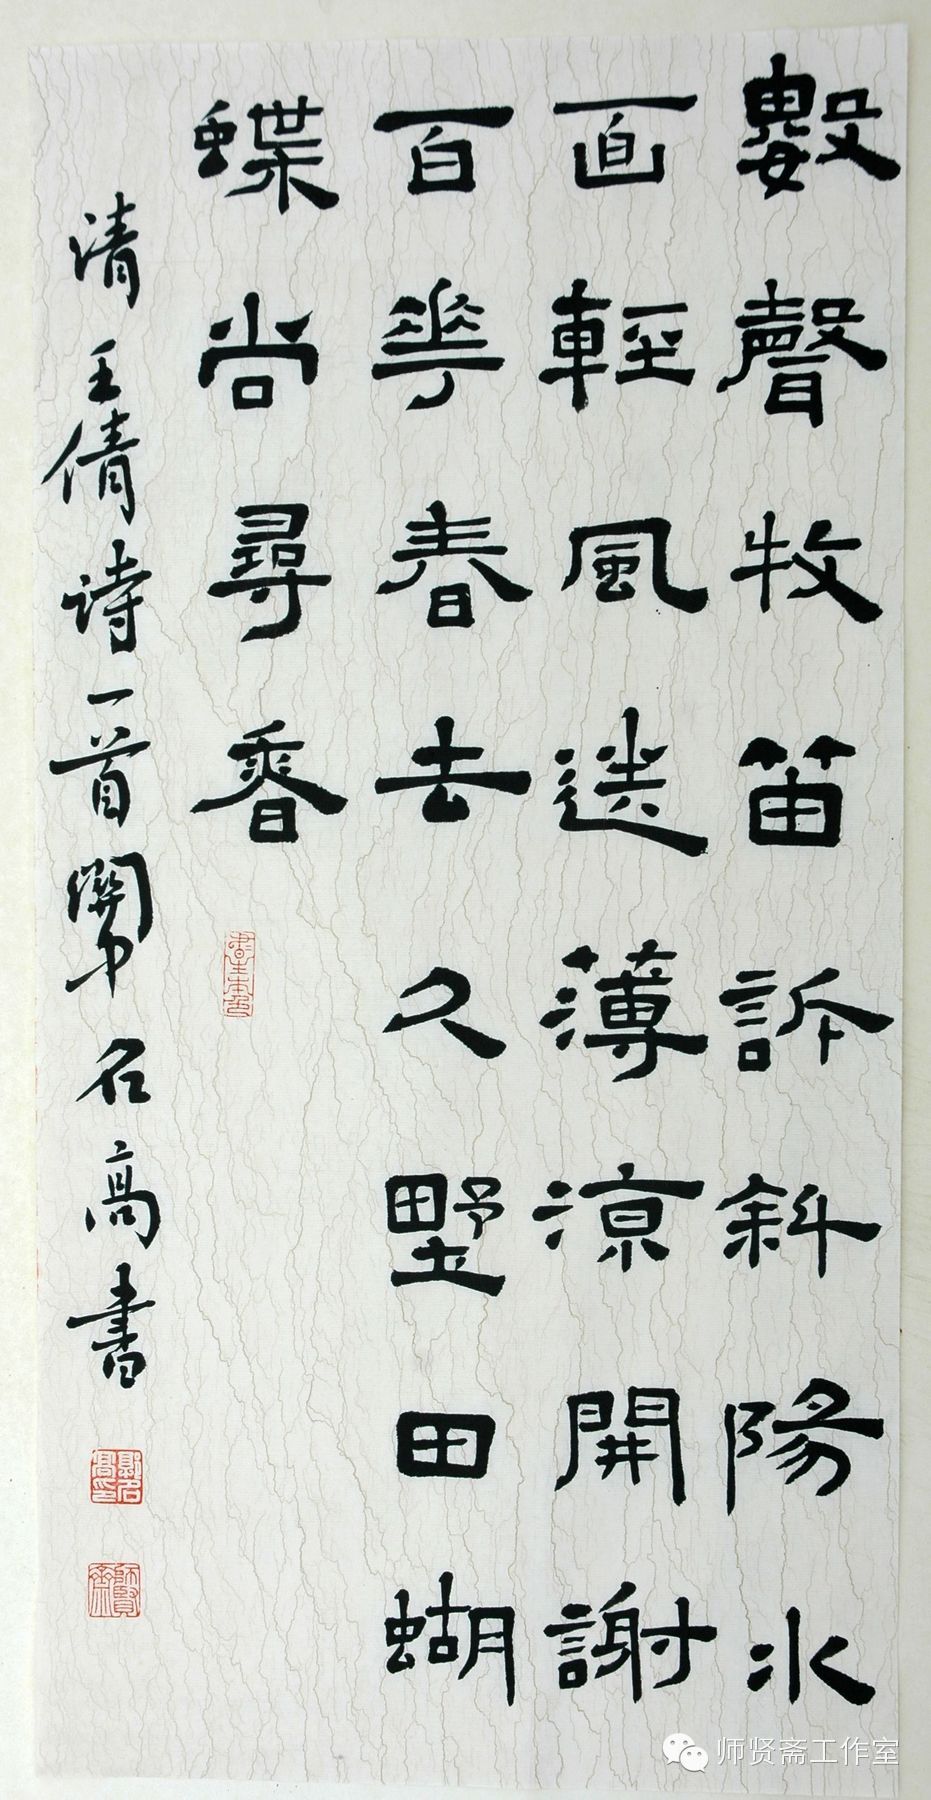 數聲牧笛訴斜陽水
面輕風送薄涼開謝
百花春去久野田蝴
蝶尚尋香
清王倩诗一首關中名高书
师贤斋工作室